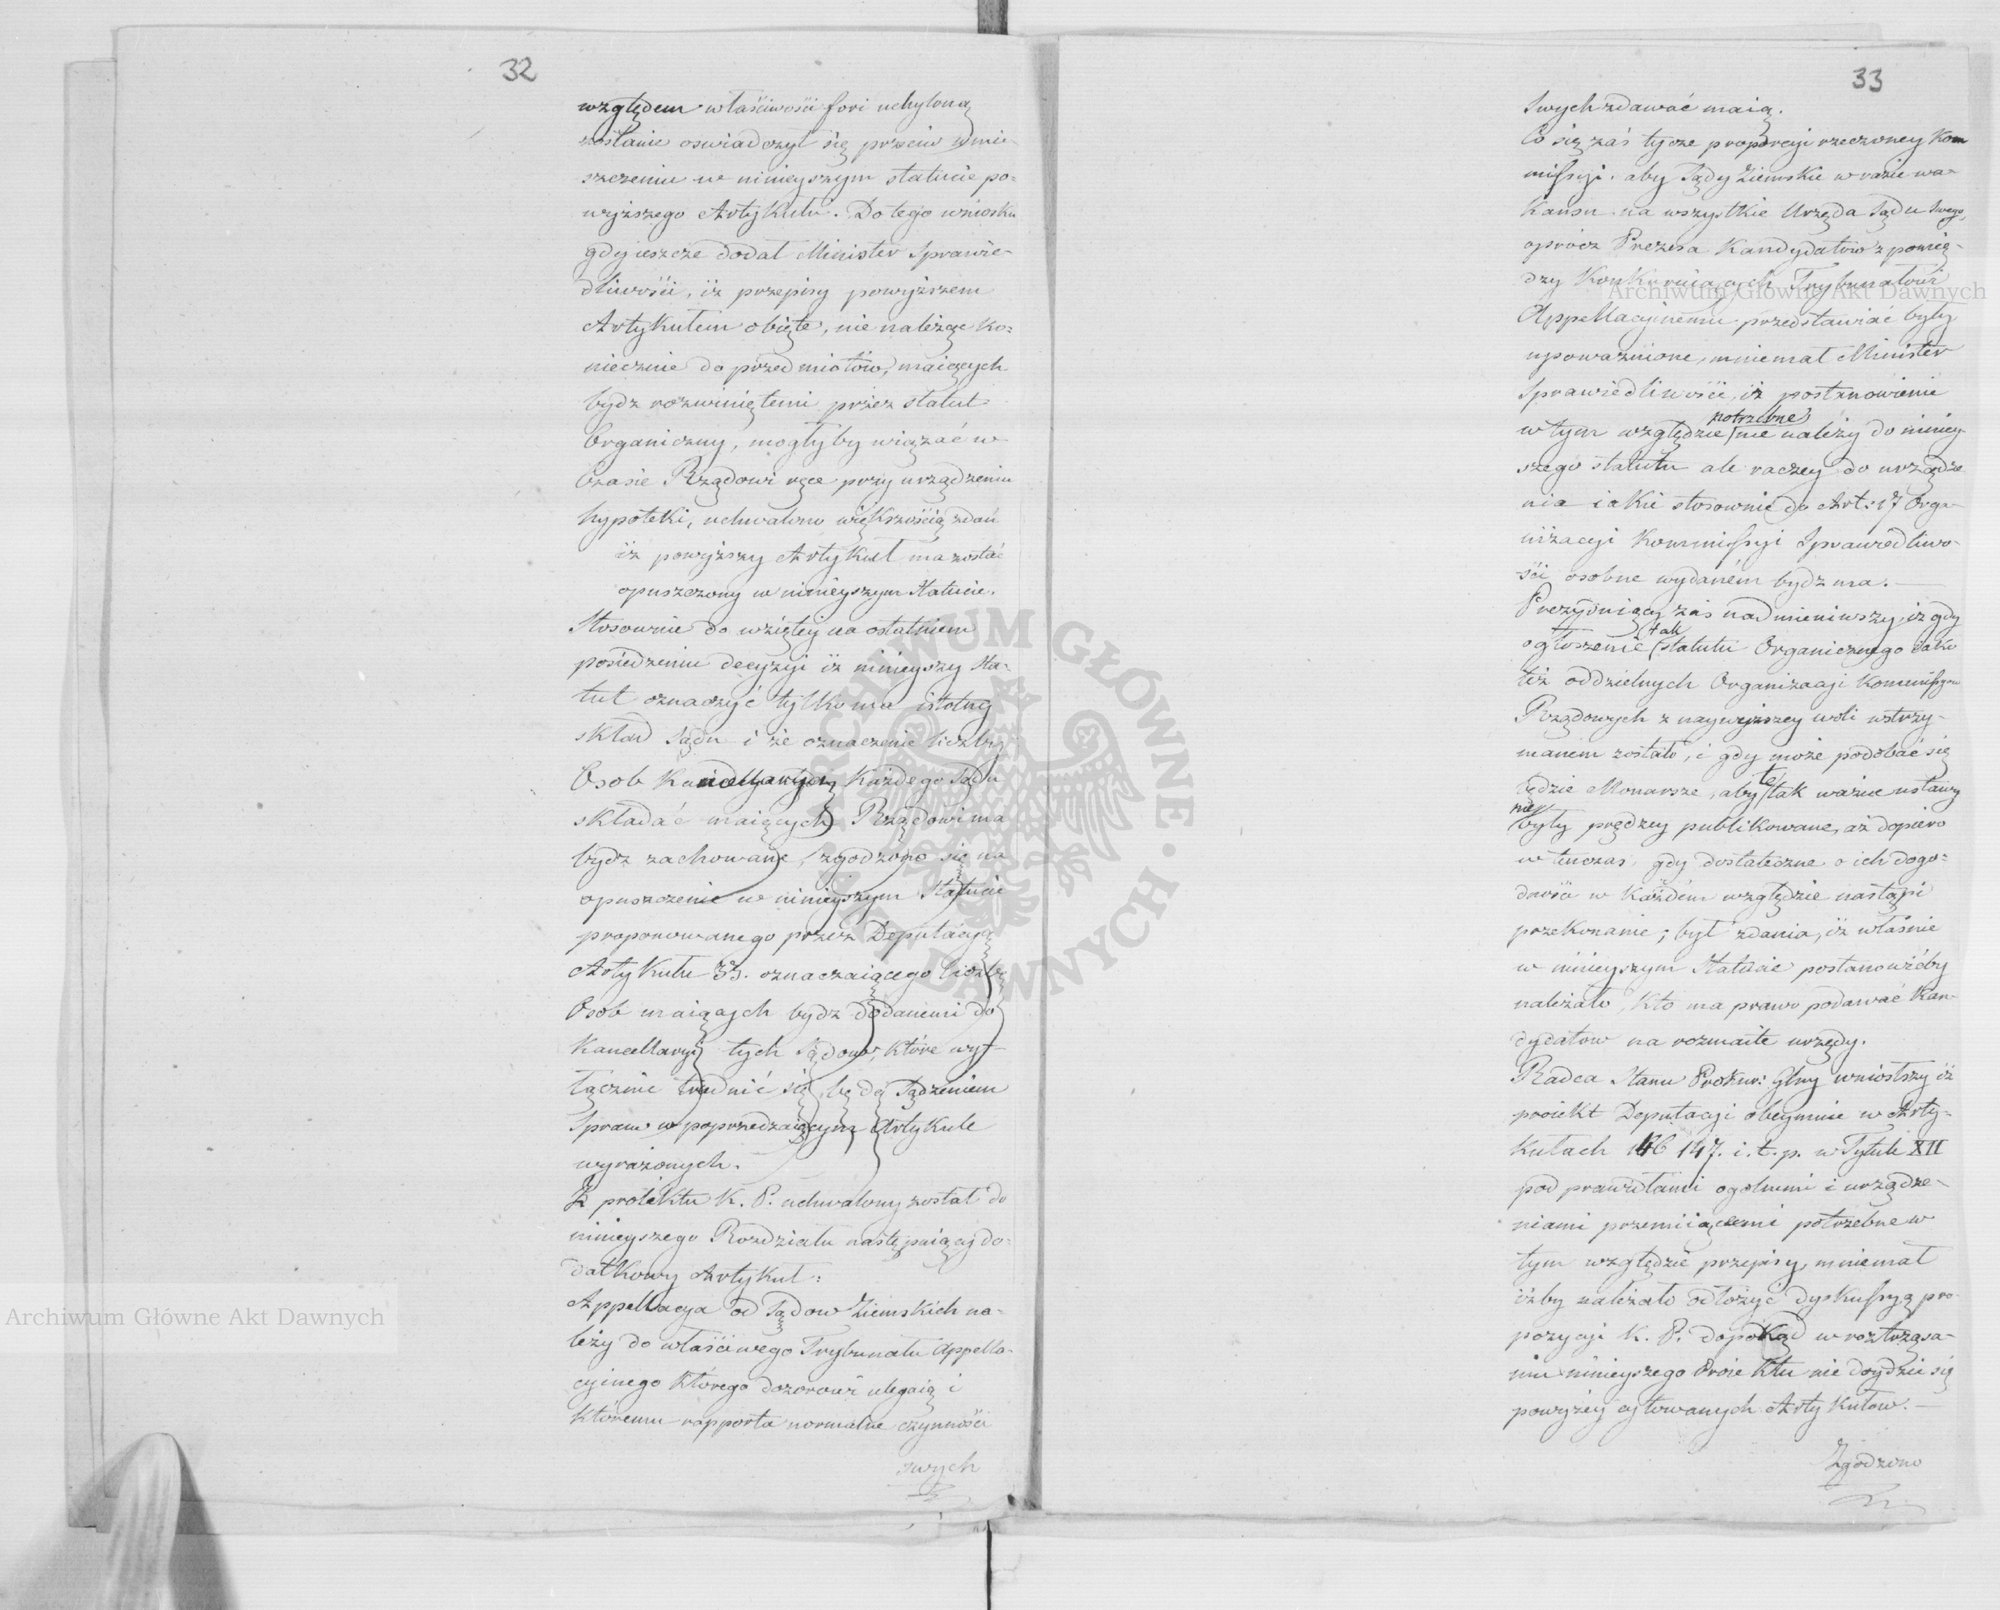 32
względem właściwości fori uchyloną
zostanie oswiadczył się przeciw umie-
szczeniu w ninieyszym statucie po-
wyższego Artykułu. Do tego wniosku
gdy ieszcze dodał Minister Sprawie-
dliwości, iż przepisy powyższem
Artykułem obięte, nie należąc ko-
niecznie do przedmiotów, maiących
bydz rozwiniętemi przez statut
Organiczny, mogłyby wiązać w
czasie Rządowi ręce przy urządzeniu
hypoteki, uchwalono większością zdań
iż powyższy Artykuł ma zostać
opuszczony w ninieyszym Statucie.
Stosownie do wziętey na ostatniem
posiedzeniu decyzyi iż ninieyszy Sta-
tut oznaczyć tylko ma istotny
skład Sądu i że oznaczenie liczby
Osob Kancellaryą Każdego Sądu
składać maiących Rządowi ma
bydz zachowane, zgodzono się na
opuszczenie w ninieyszym Statucie
proponowanego przez Deputacyą
Artykułu 33. oznaczaiącego liczbę
Osob maiących bydz dodanemi do
Kancellaryi tych Sądow, które wy-
łącznie trudnić się będą Sądzeniem
Spraw w poprzedzaiącym Artykule
wyrażonych.
Z proiektu K. P. uchwalony został do
ninieyszego Rozdziału następuiący do-
datkowy Artykuł:
Appellacya od Sądow Ziemskich na-
leży do właściwego Trybunału Appella-
cyinego którego dozorowi ulegaią i
któremu rapporta normalne czynności
swych
33
Swych zdawać maią.
Co się zaś tycze propozycyi rzeczoney Kom
missyi. aby Sądy Ziemskie w razie wa-
kansu na wszystkie Urzęda Sądu swego,
oprócz Prezesa Kandydatów z pomię-
dzy Konkuruiących Trybunałowi
Appellacyinemu przedstawiać były
upoważnione, mniemał Minister
Sprawiedliwości, iż postanowienie
potrzebne
w tym względzie nie należy do niniey
szego statutu ale raczey do urządze
nia iakie stosownie do Art: 17 Orga-
nizacyi Kommissyi Sprawiedliwo-
ści osobne wydanem bydz ma.
Prezyduiący zaś nadmieniwszy, iż gdy
tak
ogłoszenie statutu Organicznego iako
też oddzielnych Organizacyi Kommissyow
Rządowych z naywyższey woli wstrzy-
manem zostało, i gdy może podobać się
te
będzie Monarsze, aby tak ważne ustawy
nie
były prędzey publikowane, aż dopiero
w tenczas, gdy dostateczne o ich dogo-
dności w każdém względzie nastąpi
przekonanie; był zdania, iż właśnie
w ninieyszym Statucie postanowićby
należało, Kto ma prawo podawać Kan-
dydatow na rozmaite urzędy.
Radca Stanu Prokur: Glny wniosłszy iż
proiekt Deputacyi obeymuie w Arty-
kułach 146 147. i. t. p. w Tytule XII
pod prawidłami ogolnemi i urządze-
niami przemiiaiącemi potrzebne w
tym względzie przepisy, mniemał
iżby należało odłożyć dyskussyą pro-
pozycyi K. P. dopokąd w roztrząsa-
niu ninieyszego Proiektu nie doydzie się
powyżey cytowanych Artykułow.
Zgodzono
Archiwum Główne Akt Dawnych
Archiwum Główne Akt Dawnych
ARCHIWUM GŁÓWNE AKT DAWNYCH